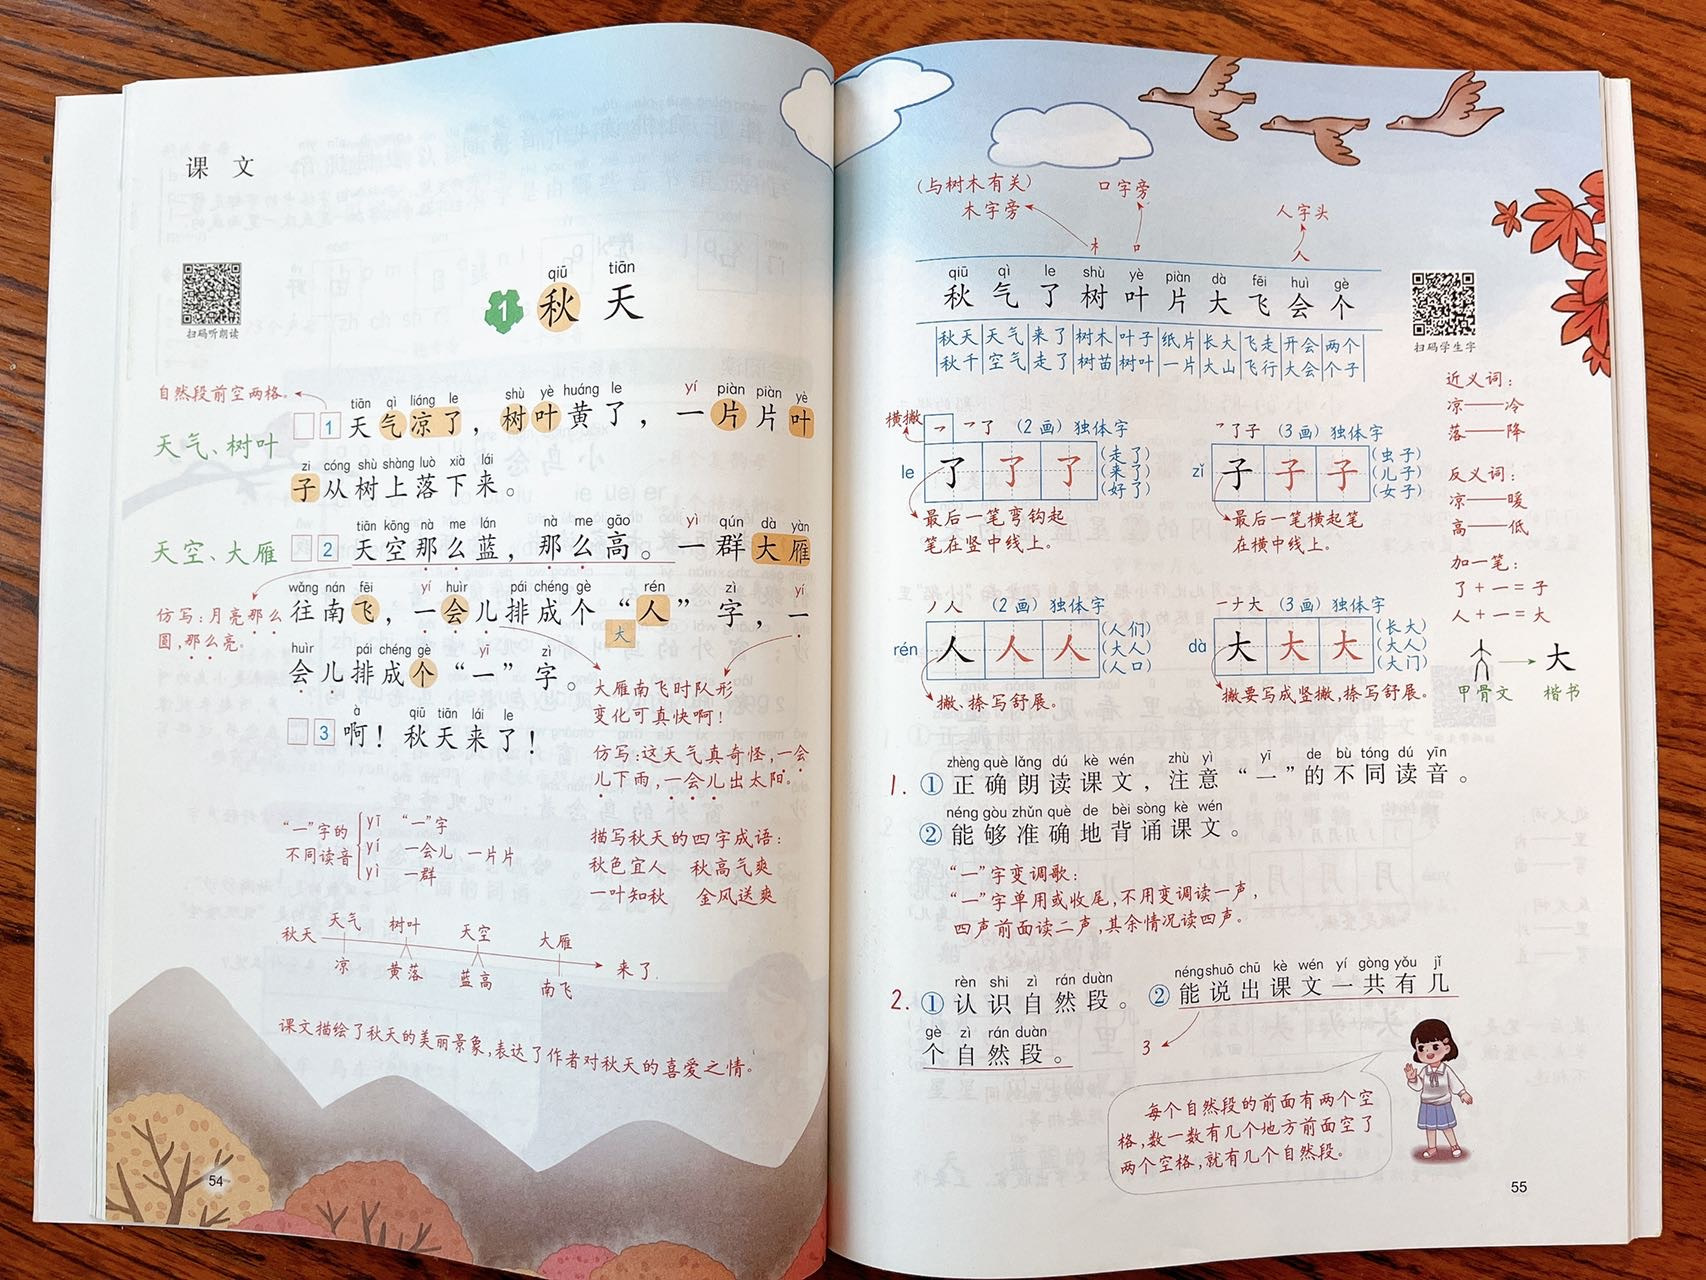 课 文
qiū tiān
1 秋 天
扫码听朗读
自然段前空两格。
tiān qì liáng le shù yè huáng le yí piàn piàn yè
1 天气凉了，树叶黄了，一片片叶
天气、树叶
zi cóng shù shàng luò xià lái
子从树上落下来。
tiān kōng nà me lán nà me gāo yì qún dà yàn
天空、大雁
2 天空那么蓝，那么高。一群大雁
wǎng nán fēi yí huìr pái chéng gè rén zì yí
往南飞，一会儿排成个“人”字，一
大
仿写：月亮那么
圆，那么亮。
huìr pái chéng gè yī zì
会儿排成个“一”字。
大雁南飞时队形
变化可真快啊！
à qiū tiān lái le
3 啊！秋天来了！
仿写：这天气真奇怪，一会
儿下雨，一会儿出太阳。
“一”字的
不同读音
yī “一”字
yí 一会儿 一片片
yì 一群
描写秋天的四字成语：
秋色宜人 秋高气爽
一叶知秋 金风送爽
天气 树叶 天空 大雁
秋天
凉 黄落 蓝高 南飞
来了
课文描绘了秋天的美丽景象，表达了作者对秋天的喜爱之情。
54
（与树木有关）
木字旁
口字旁
人字头
木 口 人
qiū qì le shù yè piàn dà fēi huì gè
秋 气 了 树 叶 片 大 飞 会 个
秋天 天气 来了 树木 叶子 纸片 长大 飞走 开会 两个
秋千 空气 走了 树苗 树叶 一片 大山 飞行 大会 个子
扫码学生字
近义词：
凉——冷
落——降
反义词：
凉——暖
高——低
加一笔：
了＋一＝子
人＋一＝大
甲骨文
大
楷书
横撇
㇇ 了 （2画）独体字
le 了 了 了
（走了）
（来了）
（好了）
最后一笔弯钩起
笔在竖中线上。
㇇了子 （3画）独体字
zǐ 子 子 子
（虫子）
（儿子）
（女子）
最后一笔横起笔
在横中线上。
丿人 （2画）独体字
rén 人 人 人
（人们）
（大人）
（人口）
撇、捺写舒展。
一ナ大 （3画）独体字
dà 大 大 大
（长大）
（大人）
（大门）
撇要写成竖撇，捺写舒展。
zhèng què lǎng dú kè wén zhù yì yī de bù tóng dú yīn
1. ①正确朗读课文，注意“一”的不同读音。
néng gòu zhǔn què de bèi sòng kè wén
②能够准确地背诵课文。
“一”字变调歌：
“一”字单用或收尾，不用变调读一声，
四声前面读二声，其余情况读四声。
rèn shi zì rán duàn néng shuō chū kè wén yí gòng yǒu jǐ
2. ①认识自然段。②能说出课文一共有几
gè zì rán duàn
个自然段。
3
每个自然段的前面有两个空
格，数一数有几个地方前面空了
两个空格，就有几个自然段。
55